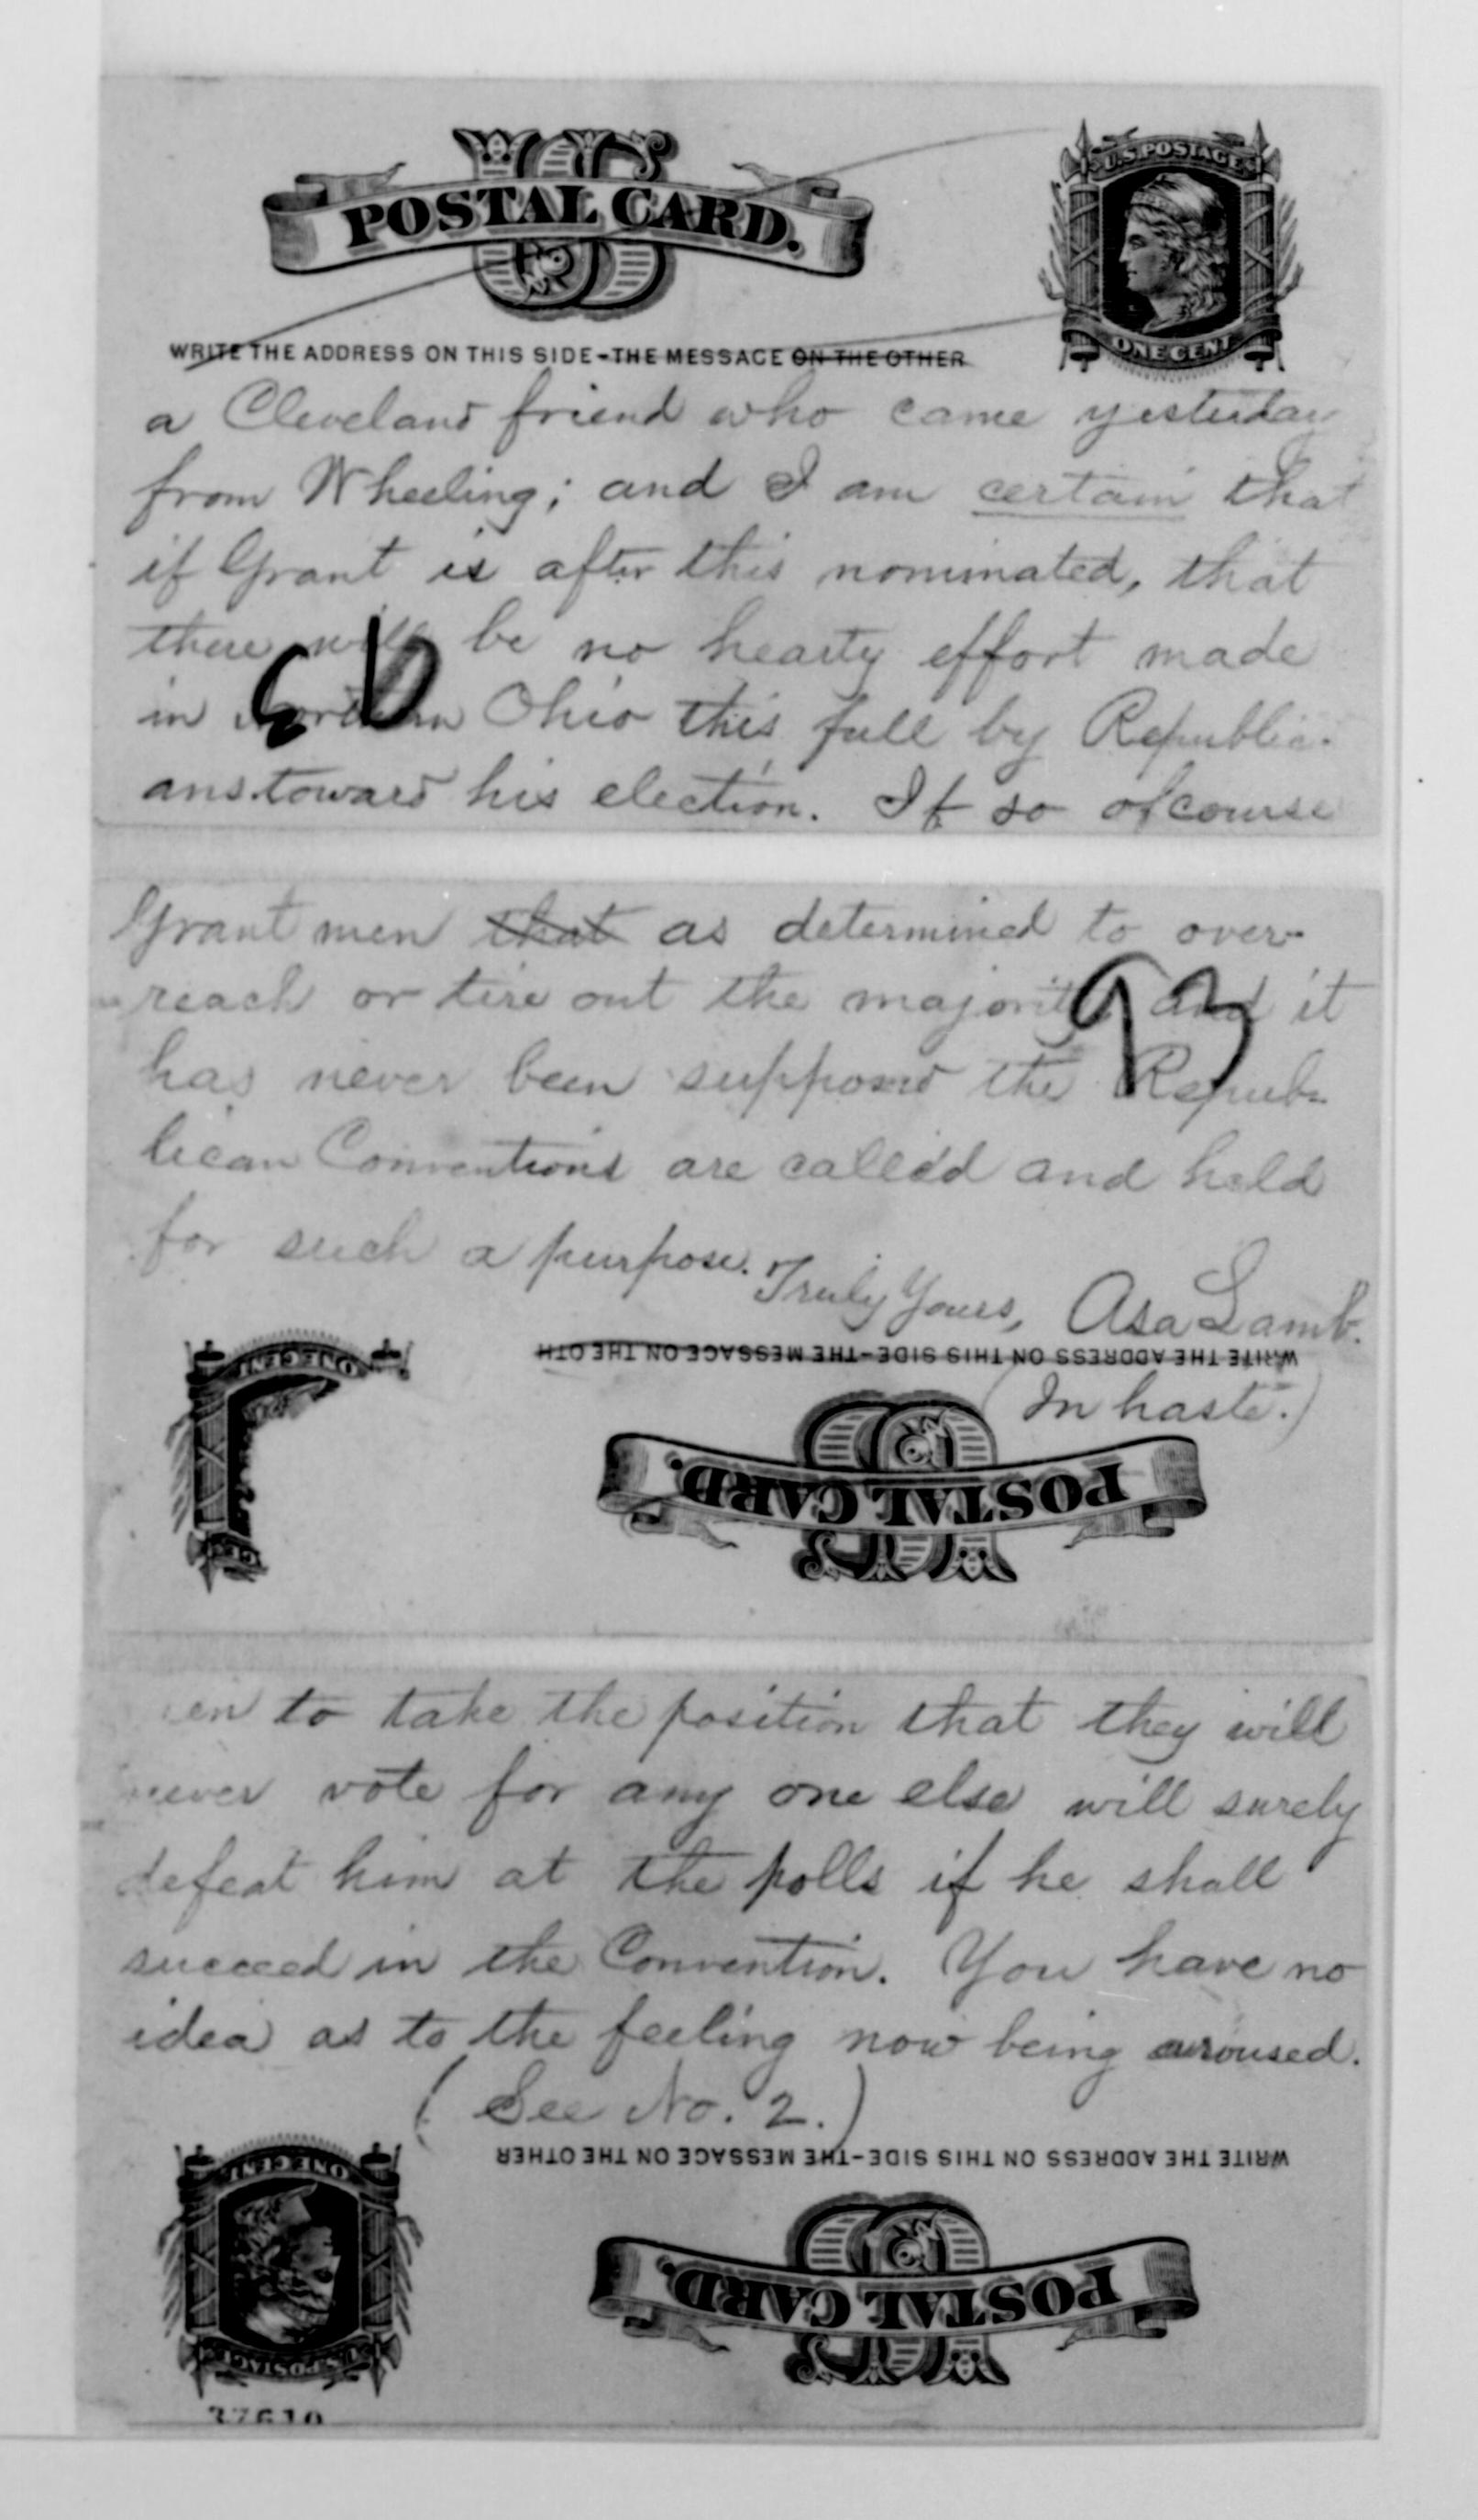 US
POSTAL CARD.
U.S. POSTAGE
ONE CENT
WRITE THE ADDRESS ON THIS SIDE-THE MESSAGE ON THE OTHER
a Cleveland friend who came yesterday
from Wheeling; and I am certain that
if Grant is after this nominated, that
there will be no hearty effort made
in Northern Ohio this fall by Republic-
ans toward his election. If so ofcourse
Grant men that as determined to over-
reach or tire out the majority and it
93
has never been supposed the Repub-
lican Conventions are called and held
for such a purpose.
Truly Yours, Asa Lamb.
WRITE THE ADDRESS ON THIS SIDE-THE MESSAGE ON THE OTH
(In haste.)
ONE CENT
POSTAL CARD.
US
to take the position that they will
never vote for any one else will surely
defeat him at the polls if he shall
succeed in the Convention. You have no
idea as to the feeling now being aroused.
(See No. 2.)
WRITE THE ADDRESS ON THIS SIDE-THE MESSAGE ON THE OTHER
ONE CENT
U.S. POSTAGE
POSTAL CARD.
US
37610